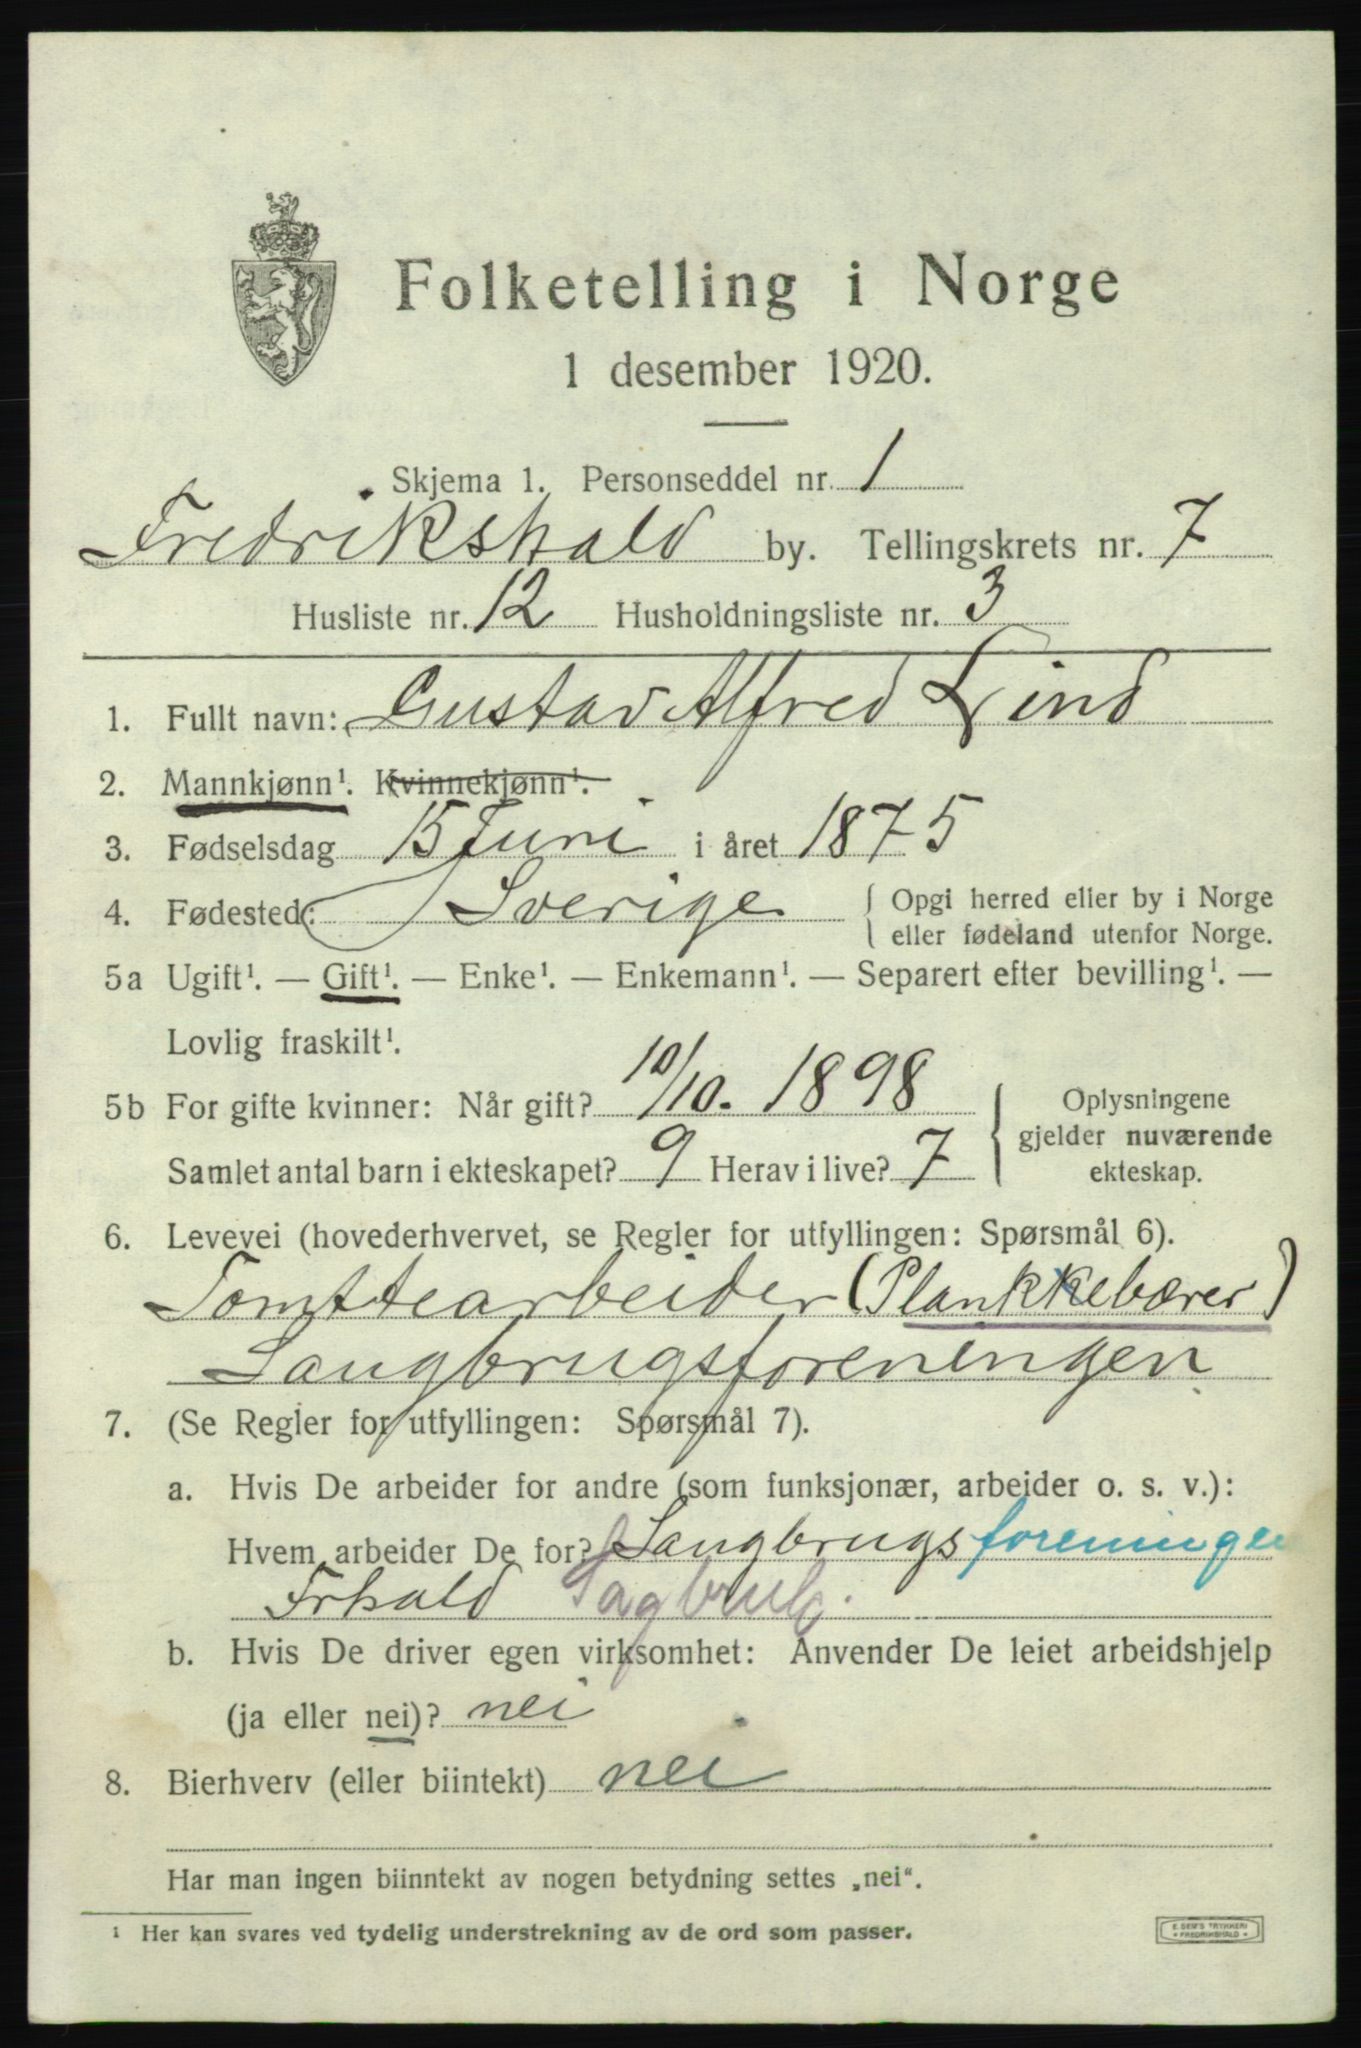 Folketelling i Norge
1 desember 1920.
Skjema 1. Personseddel nr. 1
Fredrikshald by. Tellingskrets nr. 7
Husliste nr. 12 Husholdningsliste nr. 3
1. Fullt navn: Gustav Alfred Lind
2. Mannkjønn¹. Kvinnekjønn¹.
3. Fødselsdag 15 Juni i året 1875
4. Fødested: Sverige { Opgi herred eller by i Norge
eller fødeland utenfor Norge.
5a Ugift¹. — Gift¹. — Enke¹. — Enkemann¹. — Separert efter bevilling¹. —
Lovlig fraskilt¹.
5b For gifte kvinner: Når gift? 10/10. 1898 { Oplysningene
gjelder nuværende
Samlet antal barn i ekteskapet? 9 Herav i live? 7 ekteskap.
6. Levevei (hovederhvervet, se Regler for utfyllingen: Spørsmål 6).
Tomttearbeider (Plankkebærer)
Saugbrugsforeningen
7. (Se Regler for utfyllingen: Spørsmål 7).
a. Hvis De arbeider for andre (som funksjonær, arbeider o. s. v.):
Hvem arbeider De for? Saugbrugsforeningen
Frhald Sagbruk.
b. Hvis De driver egen virksomhet: Anvender De leiet arbeidshjelp
(ja eller nei)? nei
8. Bierhverv (eller biintekt) nei
Har man ingen biinntekt av nogen betydning settes „nei“.
¹ Her kan svares ved tydelig understrekning av de ord som passer.
E. SEM'S TRYKKERI
* FREDRIKSHALD *